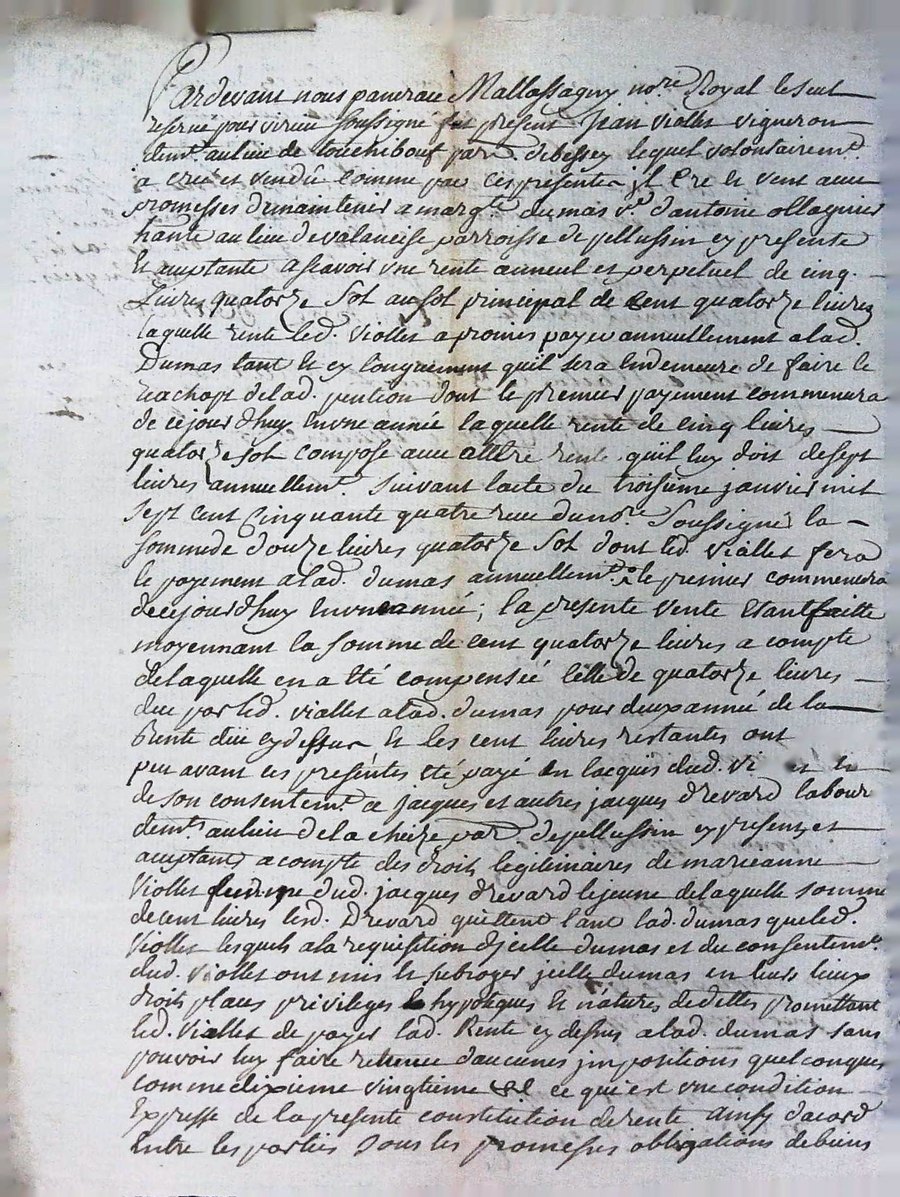 Pardevant nous pancrace Mallassagny no.re Royal le seul
reservé pour virieu soussigné fut present Jean viallet vigneron
dem.t au lieu de touchibout par. de bessey lequel volontairem.t
a créé et vendû comme par ces presentes il cré et vent avec
promesses de maintenir a marg.te dumas v.e d'antoine ollagnier
hante au lieu de valancise parroisse de pellussin cy presente
et acceptante ascavoir une rente annuel et perpetuel de cinq
Livres quatorze sol au sol principal de cent quatorze livres
laquelle rente led. viallet a promis payer annuellement a lad.
Dumas tant et cy longuement quil sera en demeure de faire le
rachapt de lad. pention dont le premier payement commencera
de cejourd'huy en une année laquelle rente de cinq livres
quatorze sol compose avec altre rente quil luy doit de sept
livres annuellem.t suivant lacte du troisième janvier mil
sept cent Cinquante quatre receu du no.re soussigné la
somme de douze livres quatorze sol dont led. viallet fera
le payement a lad. dumas annuellem.t le premier commencera
de cejourd'huy en une année; la presente vente etant faitte
moyennant la somme de cent quatorze livres a compte
de laquelle en a été compensée celle de quatorze livres
due par led. viallet a lad. dumas pour deux année de la
Rente due cy dessus et les cent livres restantes ont
peu avant ces presentes été payé en lacquis dud. vi
de son consentem.t a jacques et autres jacques drevard labour
dem.t au lieu de la cheize par. de pellussin cy present et
acceptant a compte des droits legitimaires de marieanne
Viallet femme dud. jacques drevard le jeune de laquelle somme
de cent livres lesd. Drevard quittent tant lad. dumas que led.
Viallet lesquels a la requisition dicelle dumas et du consentem.t
dud. viallet ont mis et subroger jcelle dumas en leurs lieux
droits places privileges et hypoteques et natures de delles promettant
led. viallet de payer lad. Rente cy dessus a lad. dumas sans
pouvoir luy faire retenue daucunes jmpositions quelconques
comme dixieme vingtieme ce qui est une condition
Expresse de la presente constitution de rente ainsy d'acord
Entre les parties sous les promesses obligations de biens